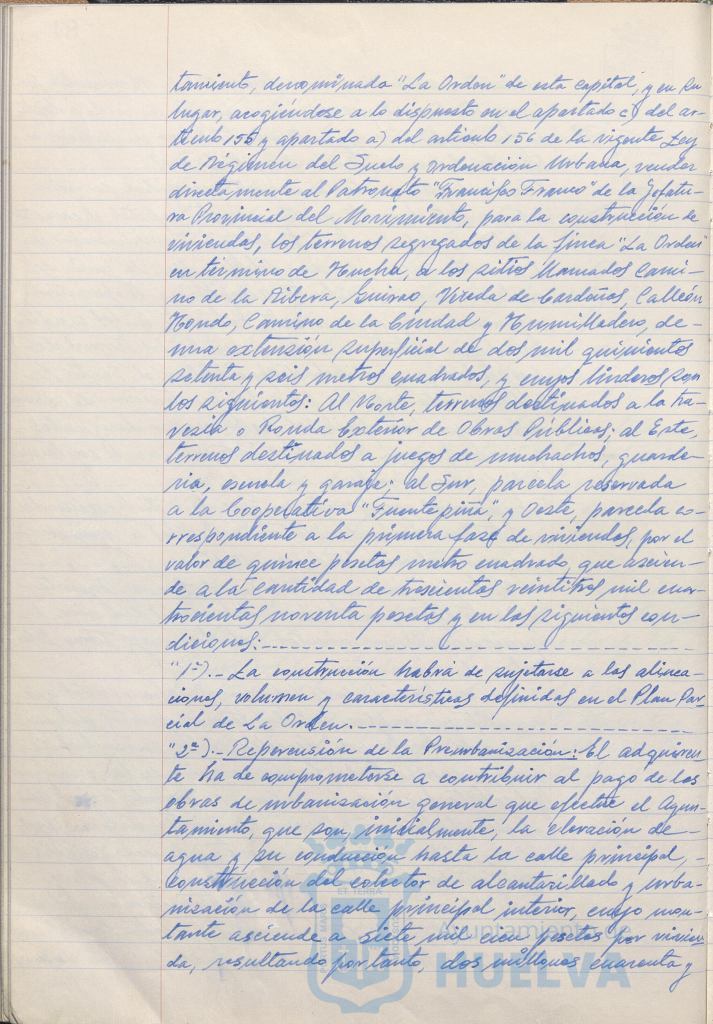 tamiento, denominada "La Orden" de esta capital, y en su
lugar, acogiéndose a lo dispuesto en el apartado c) del ar-
tículo 155 y apartado a) del artículo 156 de la vigente Ley
de Régimen del Suelo y Ordenación Urbana, vender
directamente al Patronato "Francisco Franco" de la Jefatu-
ra Provincial del Movimiento, para la construcción de
viviendas, los terrenos segregados de la finca "La Orden"
en término de Huelva, a los sitios llamados Cami-
no de la Ribera, Guirao, Vereda de Cardeñas, Callejón
Hondo, Camino de la Ciudad y Humilladero, de
una extensión superficial de dos mil quinientos
setenta y seis metros cuadrados, y cuyos linderos son
los siguientes: Al Norte, terrenos destinados a la tra-
vesía o Ronda Exterior de Obras Públicas; al Este,
terrenos destinados a juegos de muchachos, guarde-
ría, escuela y garaje; al Sur, parcela reservada
a la Cooperativa "Fuentepiña", y Oeste, parcela co-
rrespondiente a la primera fase de viviendas, por el
valor de quince pesetas metro cuadrado, que ascien-
de a la cantidad de trescientas veintitres mil cua-
trocientas noventa pesetas y en las siguientes con-
diciones:
"1ª).- La construcción habrá de sujetarse a las alinea-
ciones, volumen y características definidas en el Plan Par-
cial de La Orden.
"2ª).- Repercusión de la Preurbanización: El adquiren-
te ha de comprometerse a contribuir al pago de las
obras de urbanización general que efectúe el Ayun-
tamiento, que son, inicialmente, la elevación de
agua y su conducción hasta la calle principal,
construcción del colector de alcantarillado y urba-
nización de la calle principal interior, cuyo mon-
tante asciende a siete mil cien pesetas por vivien-
da, resultando por tanto, dos millones cuarenta y
Ayuntamiento de
HUELVA